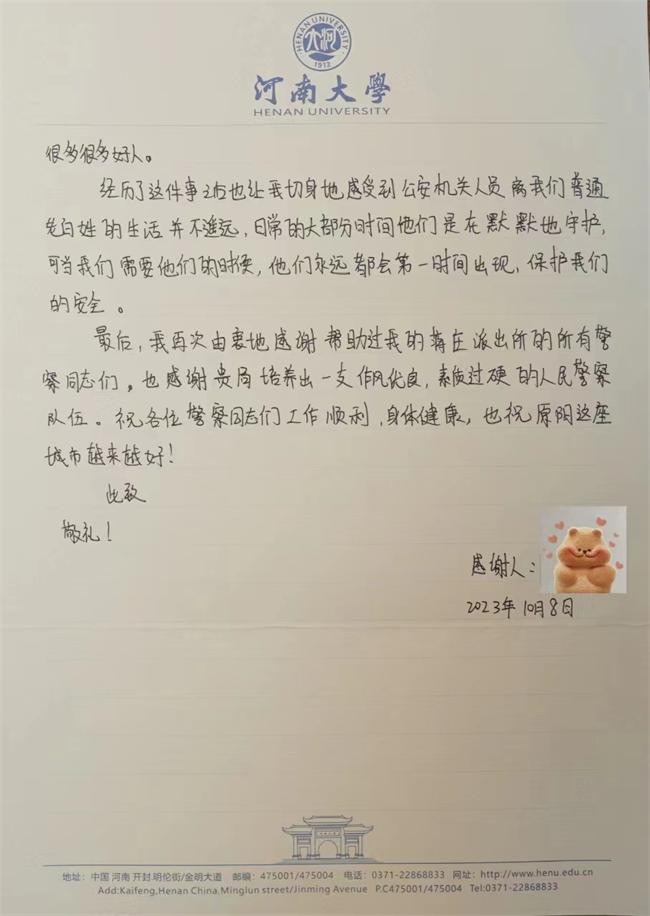 HENAN UNIVERSITY
1912
河南大學
HENAN UNIVERSITY
很多很多好人。
经历了这件事之后也让我切身地感受到公安机关人员离我们普通
老百姓的生活并不遥远,日常的大部分时间他们是在默默地守护,
可当我们需要他们的时候,他们永远都会第一时间出现,保护我们
的安全。
最后,我再次由衷地感谢帮助过我的蒋庄派出所的所有警
察同志们,也感谢贵局培养出一支作风优良,素质过硬的人民警察
队伍。祝各位警察同志们工作顺利,身体健康,也祝原阳这座
城市越来越好!
此致
敬礼!
感谢人:
2023年10月8日
地址:中国 河南 开封.明伦街/金明大道 邮编:475001/475004 电话:0371-22868833 网址:http://www.henu.edu.cn
Add:Kaifeng,Henan China.Minglun street/Jinming Avenue P.C475001/475004 Tel:0371-22868833